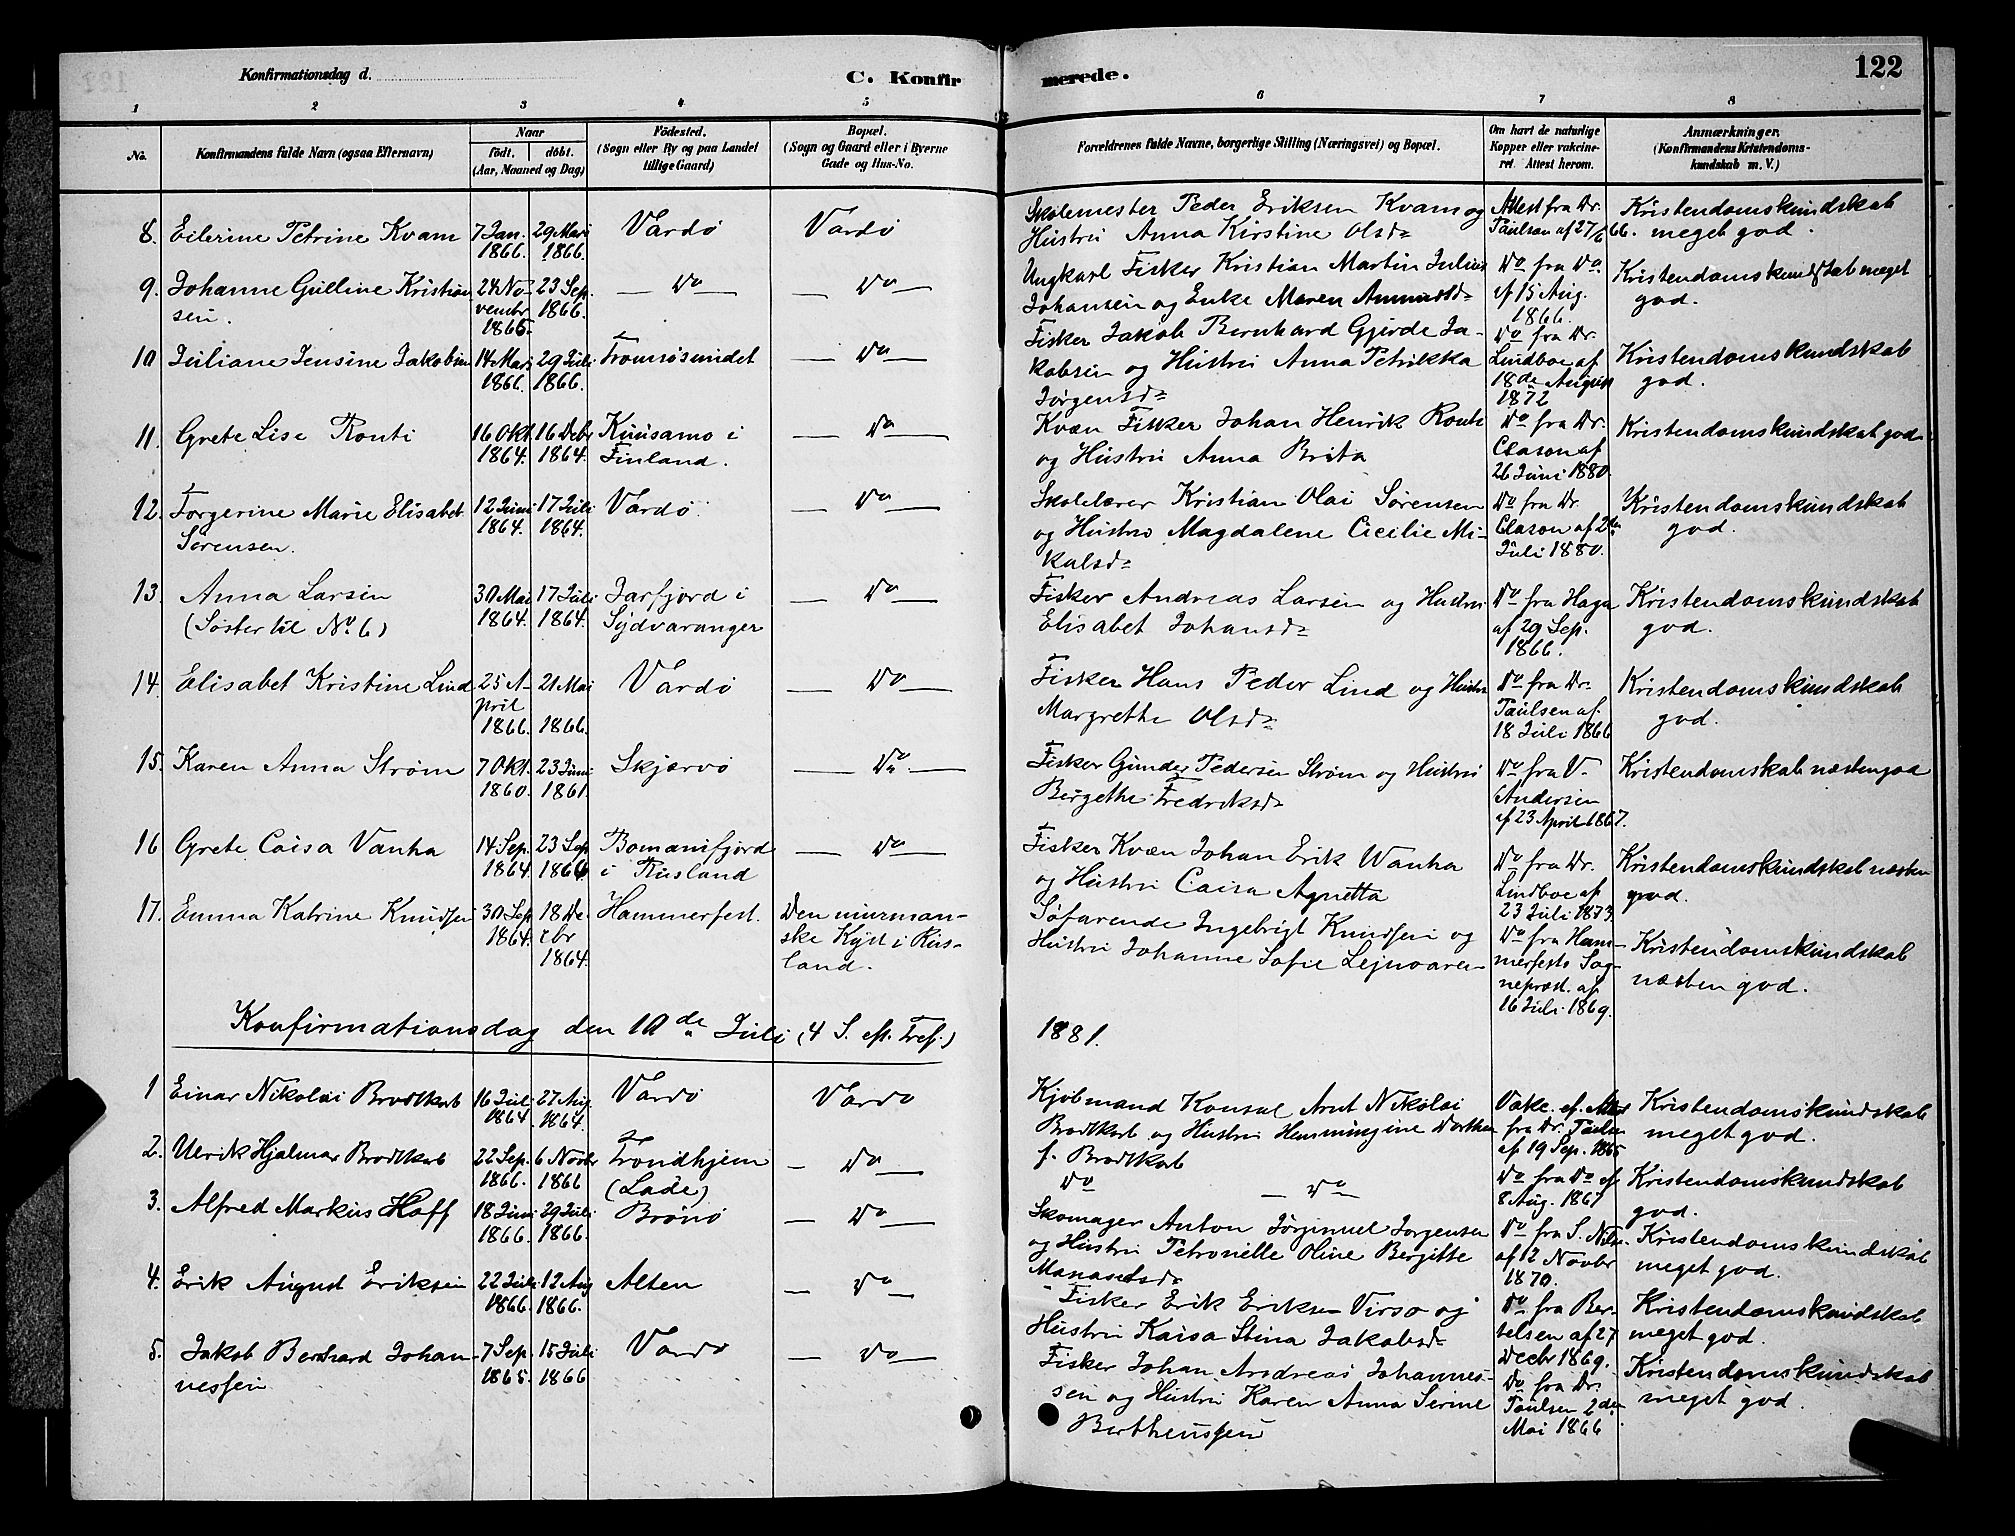 Konfirmationsdag d.
C. Konfirmerede.
122
1 2 3 4 5 6 7 8
No.
Konfirmandens fulde Navn (ogsaa Efternavn)
Naar
født. døbt.
(Aar, Maaned og Dag)
Fødested.
(Sogn eller By og paa Landet
tillige Gaard)
Bopæl.
(Sogn og Gaard eller i Byerne
Gade og Hus-No.
Forældrenes fulde Navne, borgerlige Stilling (Næringsvei) og Bopæl.
Om havt de naturlige
Kopper eller vakcine-
ret. Attest herom.
Anmærkninger.
(Konfirmandens Kristendoms-
kundskab m. V.)
8. Eilerine Petrine Kvam
7 Jan. 1866.
29 Mars 1866.
Vardø
Vardø
Skolemester Peder Eriksen Kvam og
Hustru Anna Kirstine Olsd=
Attest fra Dr.
Paulsen af 27/6 66.
Kristendomskundskab
meget god.
9. Johanne Gulline Kristian
sen.
24 No-
vembr
1865.
23 Sep.
1866.
— Do —
— Do —
Ungkarl Fisker Kristian Martin Julius
Johansen og Enke Maren Amundsd=
Do fra Do
af 15 Aug.
1866.
Kristendomskundskab meget
god.
10 Juliane Jensine Jakobsen
14 Mars
1866.
29 Juli
1866.
Tromsøsundet
— Do —
Fisker Jakob Bernhard Gjerde Ja-
kobsen og Hustru Anna Petrikka
Jørgensd=
Do fra Dr.
Lindboe af
18de August
1872
Kristendomskundskab
god.
11. Grete Lise Ronti
16 Okt.
1864.
16 Debr
1864.
Kuusamo i
Finland.
— Do —
Kvæn Fisker Johan Henrik Ronti
og Hustru Anna Brita
Do fra Dr.
Clason af
26 Juni 1880.
Kristendomskundskab god.
12. Torgerine Marie Elisabet
Sørensen.
12 Juni
1864.
17 Juli
1864.
Vardø
— Do —
Skolelærer Kristian Olai Sørensen
og Hustru Magdalene Cicilie Mi-
kalsd=
Do fra Dr.
Clason af 2den
Juli 1880.
Kristendomskundskab
god.
13. Anna Larsen
(Søster til No. 6)
30 Mai
1864.
17 Juli
1864.
Jarfjord i
Sydvaranger
— Do —
Fisker Andreas Larsen og Hustru
Elisabet Johansd=
Do fra Haga
af 29 Sep.
1866.
Kristendomskundskab
god.
14. Elisabet Kristine Lind
25 A-
pril
1866.
21 Mai
1866.
Vardø
— Do —
Fisker Hans Peder Lind og Hustru
Margrethe Olsd=
Do fra Dr.
Paulsen af
18 Juli 1866
Kristendomskundskab
god.
15. Karen Anna Strøm
7 Okt.
1860.
23 Juni
1861.
Skjærvø
— Do —
Fisker Gunder Pedersen Strøm og Hustru
Bergethe Fredriksd=
Do fra V.
Andersen
af 23 April 1867.
Kristendomskab næsten god
16 Grete Caisa Vanha
14 Sep.
1864.
23 Sep
1866
Bomanifjord
i Rusland
— Do —
Fisker Kvæn Johan Erik Wanha
og Hustru Caisa Agnetta
Do fra Dr.
Lindboe af
23 Juli 1873.
Kristendomskundskab næsten
god.
17. Emma Katrine Knudsen
30 Sep
1864.
18 De-
cbr
1864.
Hammerfest.
Den murman-
ske Kyst i Rus-
land.
Søfarende Ingebrigt Knudsen og
Hustru Johanne Sofie
Do fra Ham-
merfests Sog-
neprest af
16 Juli 1869.
Kristendomskundskab
næsten god.
Konfirmationsdag den 10de Juli (4 S. eft. Tref.) 1881.
1 Einar Nikolai Brodtkorb
16 Jul.
1864.
27 Aug.
1864.
Vardø
Vardø
Kjøbmand Konsul Arnt Nikolai
Brodtkorb og Hustru Hemmingine Dorthea
f. Brodtkorb
Vakc. ef. Attest
fra Dr. Paulsen
af 19 Sep. 1865
Kristendomskundskab
meget god.
2. Ulrik Hjalmar Brodtkorb
22 Sep.
1866.
6 Novbr
1866
Trondhjem
(Lade)
— Do —
Do — Do —
Do fra Do af
8 Aug. 1867
Kristendomskundskab
god.
3. Alfred Markus Hoff
18 Juni
1866.
29 Juli
1866.
Brønø
— Do —
Skomager Anton Jørginuel Jørgensen
og Hustru Petronelle Oline Bergitte
Manassesd=
Do fra S. Nils.
af 12 Novbr
1870.
Kristendomskundskab
meget god.
4. Erik August Eriksen
22 Juli
1866.
12 Aug
1866.
Alten
— Do —
Fisker Erik Eriksen Virso og
Hustru Kaisa Stina Jakobsd=
Do fra Ber-
telsen af 27
Decbr 1869.
Kristendomskundskab
meget god.
5. Jakob Bernhard Johan-
nessen
7 Sep.
1865.
15 Juli
1866
Vardø
— Do —
Fisker Johan Andreas Johannes-
sen og Hustru Karen Anna Serine
Bertheussen
Do fra Dr.
Paulsen 2den
Mai 1866
Kristendomskundskab
meget god.